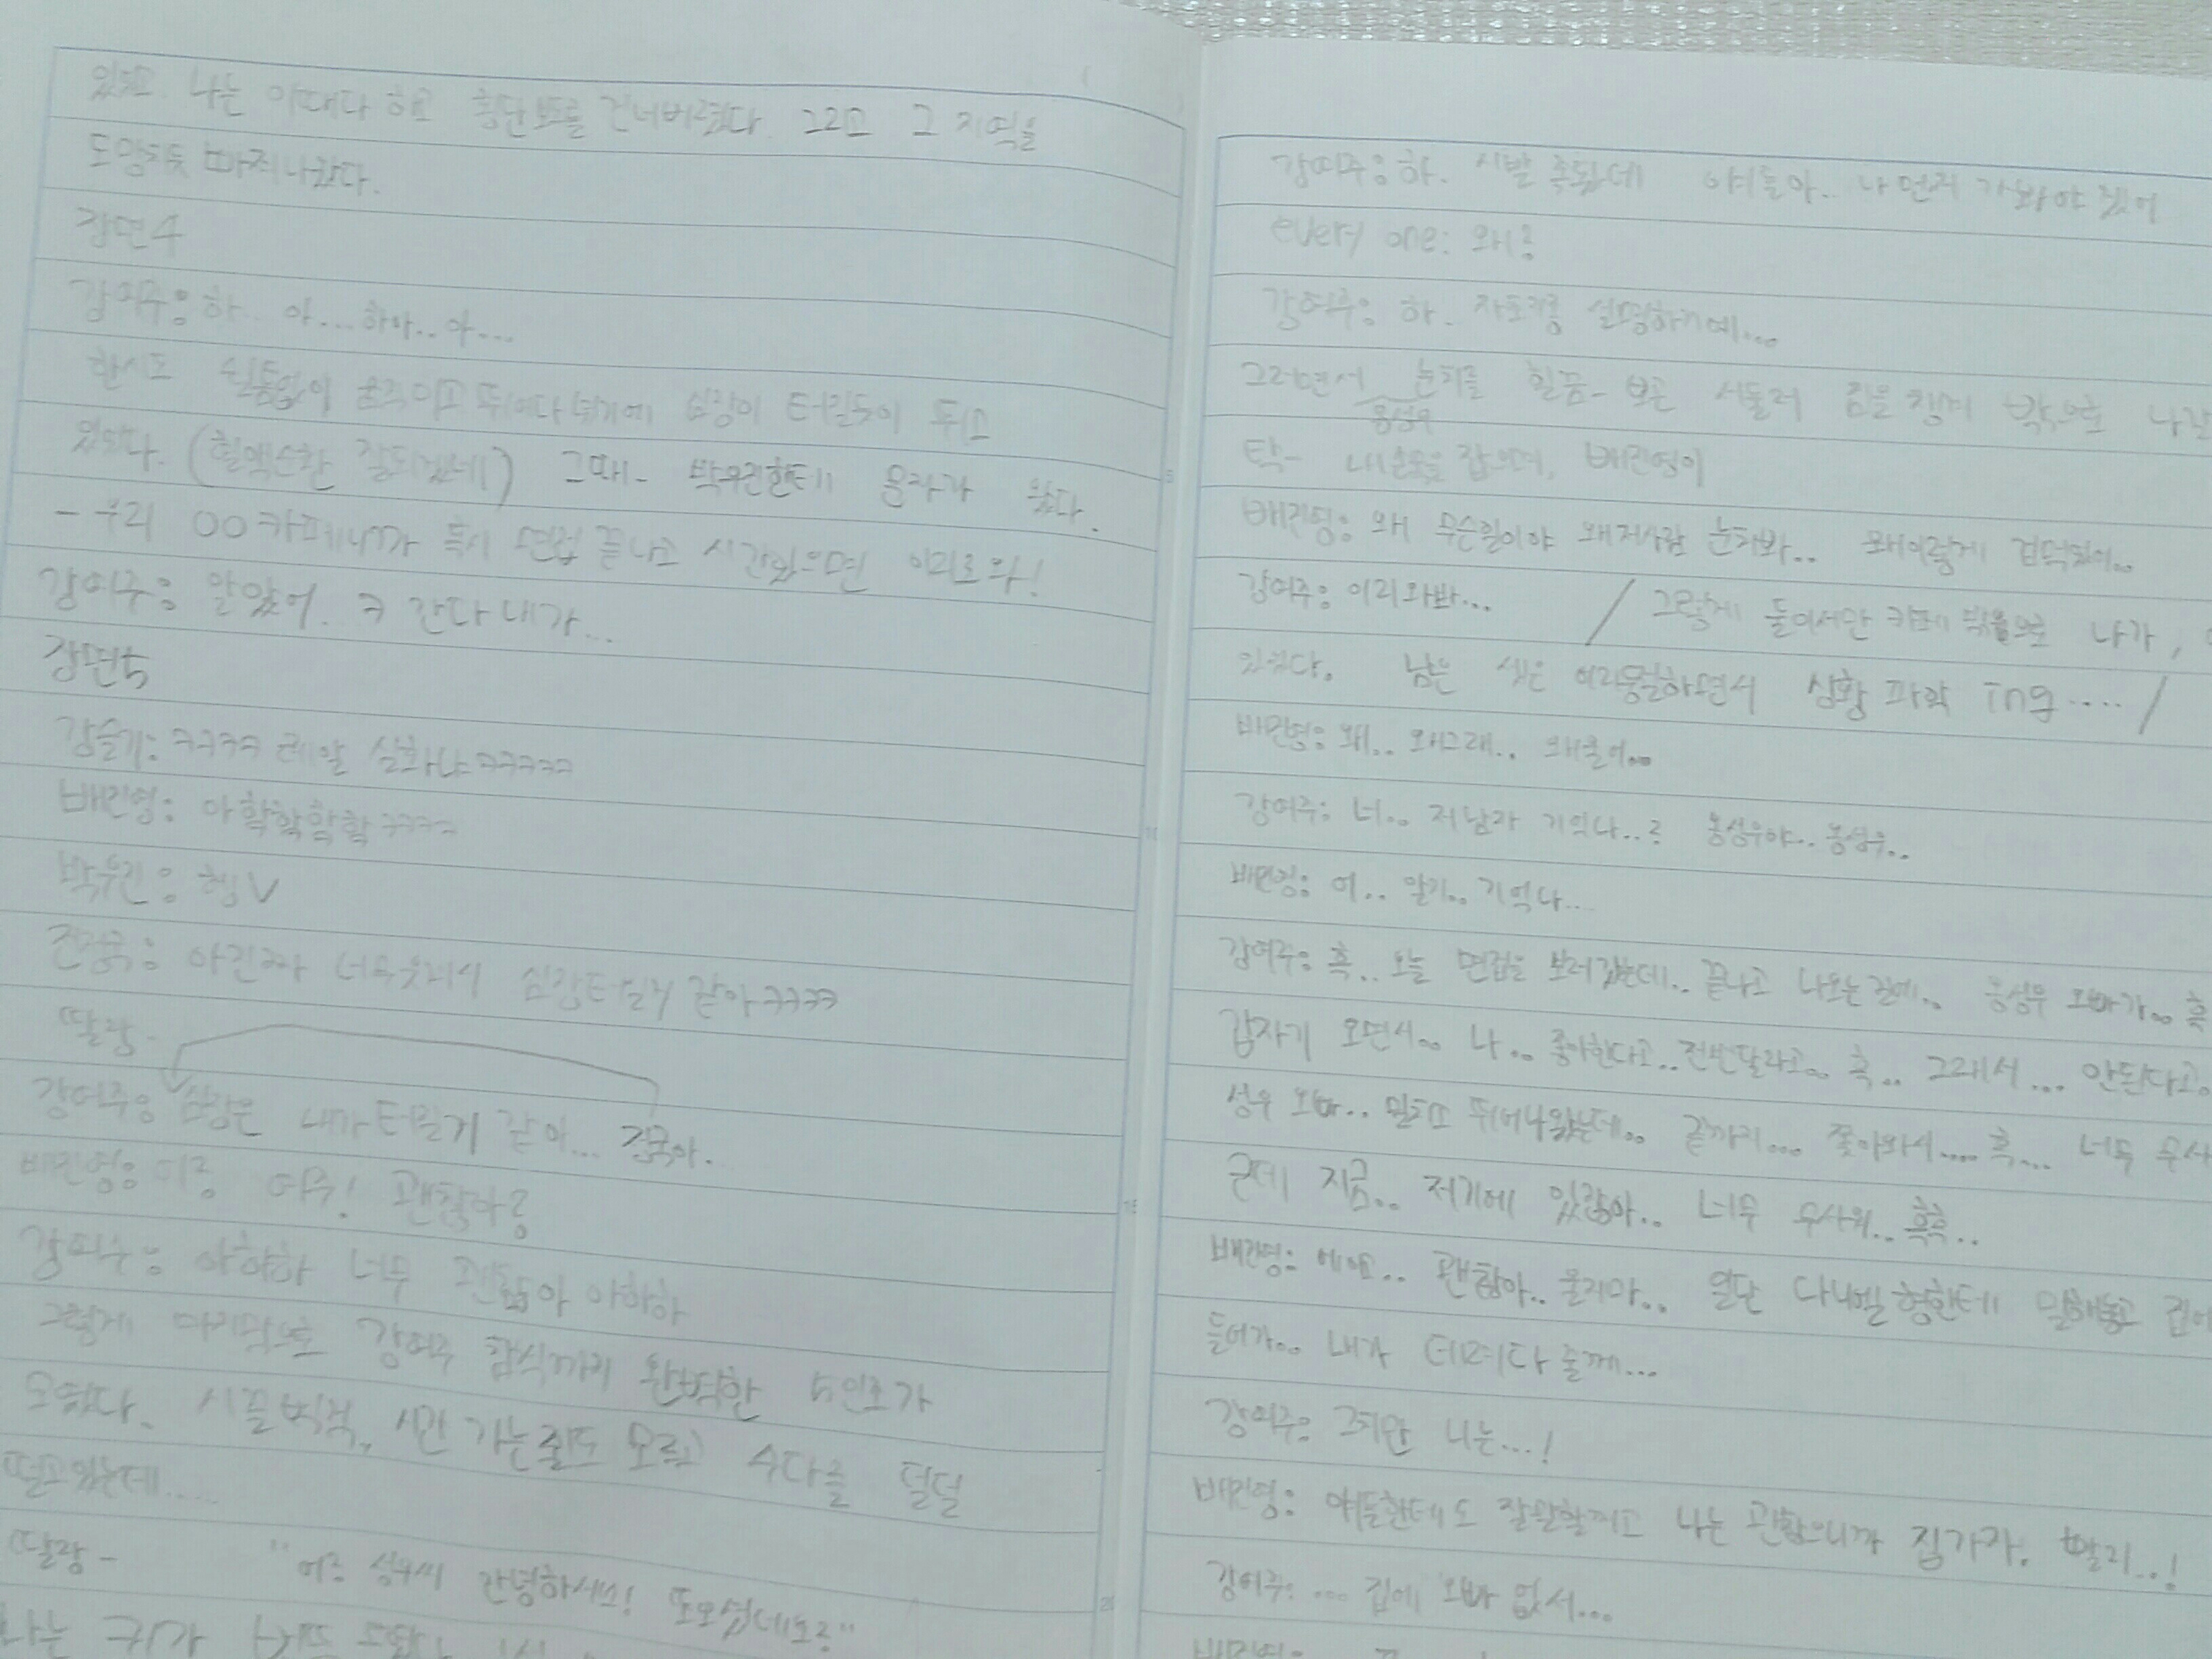 있었고. 나는 이때다 하고 횡단보도를 건너버렸다. 그리고 그 지역을
도망치듯 빠져나왔다.
장면4
강여주: 하.. 아... 하아.. 아...
한시도 쉴틈없이 움직이고 뛰어다녔기에 심장이 터질듯이 뛰고
있었다. (혈액순환 잘되겠네) 그때- 박우진한테 문자가 왔다.
- 우리 OO카페니까 혹시 면접 끝나고 시간있으면 이리로와!
강여주: 알았어. ㅋ 간다 내가...
장면5
강슬기: ㅋㅋㅋㅋ 레알 실화냐ㅋㅋㅋㅋㅋ
배진영: 아학학학학ㅋㅋㅋㅋ
박우진: 헿V
전정국: 아진짜 너무웃겨서 심장터질거 같아ㅋㅋㅋㅋ
딸랑-
강여주: 심장은 내가 터질거 같아... 정국아.
배진영: 어? 여주! 괜찮아?
강여주: 아하하 너무 괜찮아 아하하
그렇게 마지막으로 강여주 합식까지 완벽한 5인조가
모였다. 시끌벅적, 시간 가는줄도 모르고 수다를 덜덜
떨고있는데.....
딸랑- "어? 성우씨 안녕하세요! 또오셨네요?"
나는
강여주: 하. 시발 족됐데 얘들아.. 나 먼저 가봐야 겠어
every one: 왜?
강여주: 하. 자초지종 설명하기에...
그러면서 옹성우 눈치를 힐끔- 보곤 서둘러 짐을 챙겨 밖으로
탁- 내손목을 잡으며, 배진영이
배진영: 왜 무슨일이야 왜저사람 눈치봐.. 왜이렇게 겁먹었어..
강여주: 이리와봐... / 그렇게 둘이서만 카페 밖으로 나가,
있었다. 남은 셋은 어리둥절하면서 상황 파악 ing..... /
배진영: 왜.. 왜그래.. 왜울어...
강여주: 너.. 저남자 기억나..? 옹성우야.. 옹성우..
배진영: 어.. 알지.. 기억나...
강여주: 흑.. 오늘 면접을 보러갔는데.. 끝나고 나오는길에.. 옹성우 오빠가.. 흑
갑자기 오면서.. 나.. 좋아한다고.. 전번달라고.. 흑.. 그래서... 안된다고
성우 오빠.. 밀치고 뛰어나왔는데.. 끝까지... 쫓아와서.... 흑... 너무
근데 지금.. 저기에 있잖아.. 너무 무서워.. 흑흑..
배진영: 에에.. 괜찮아.. 울지마.. 일단 다니엘 형한테 말해놓고
들어가.. 내가 데려다 줄께...
강여주: 그치만 너는...!
배진영: 얘들한테도 잘말할꺼고 나는 괜찮으니까 집가자. 빨리..!
강여주: ... 집에 오빠 없서...
배진영: